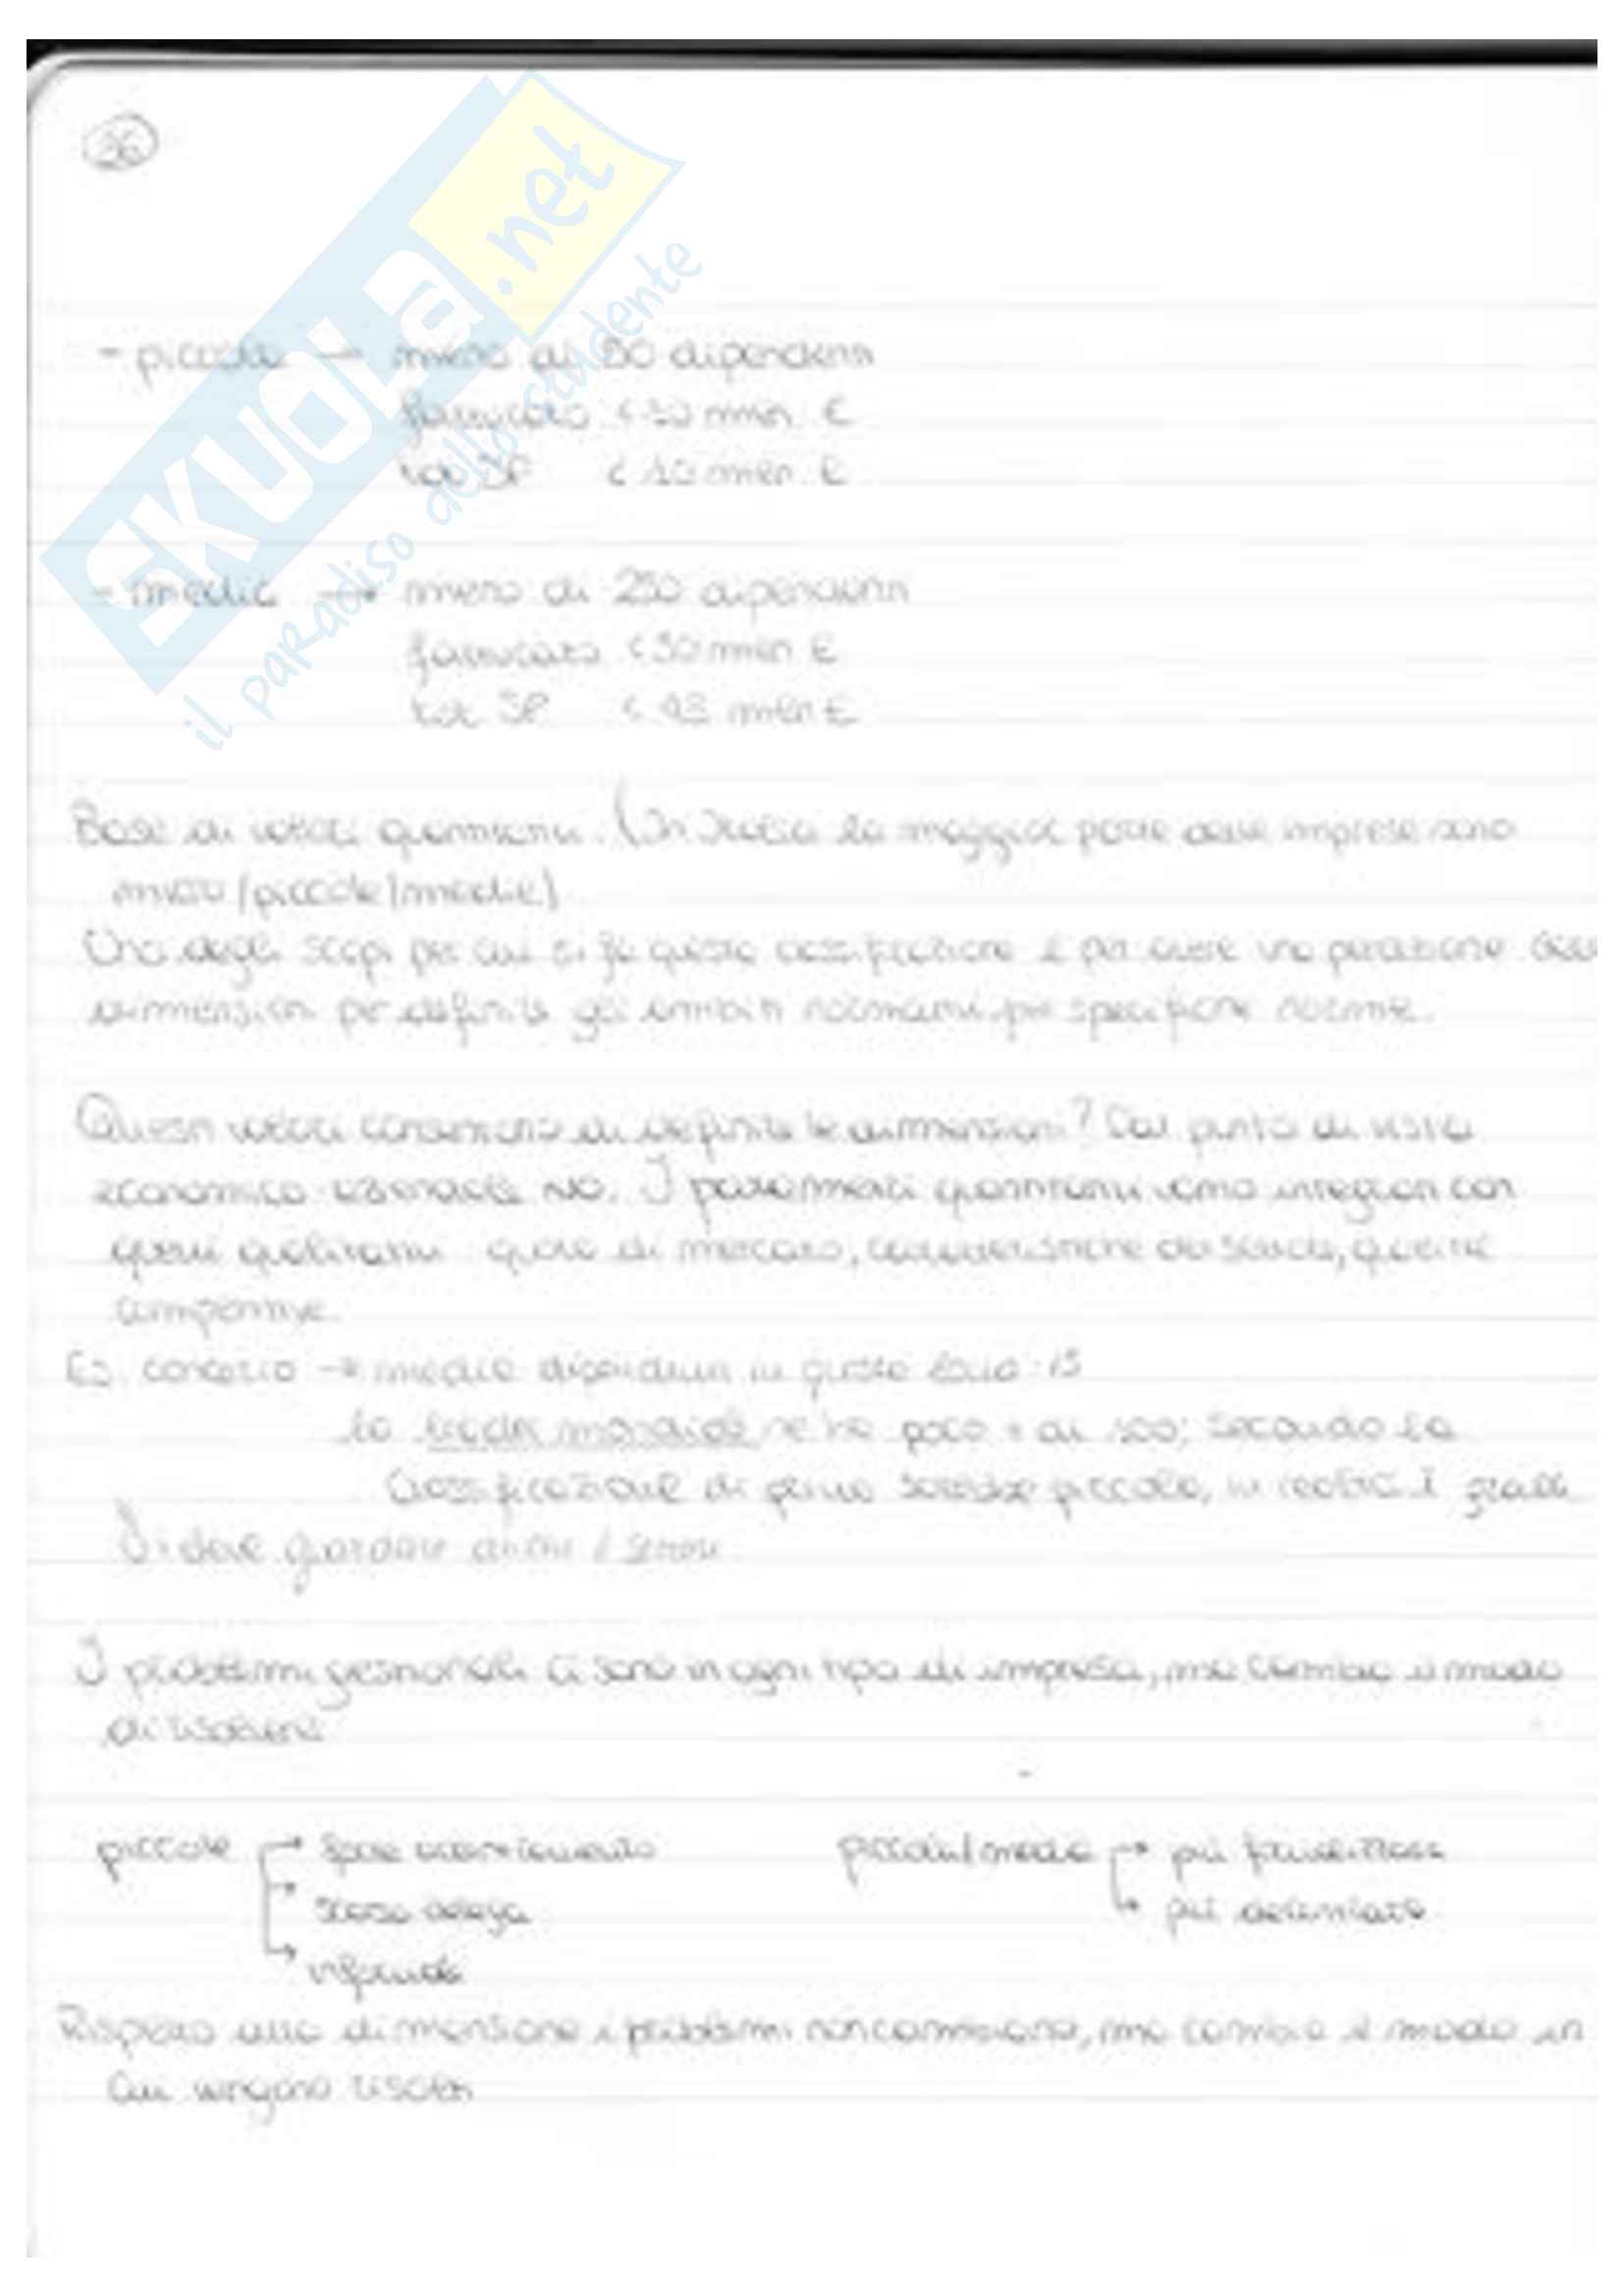 36
SKUOLA.net
il paradiso dello studente
- piccola → meno di 50 dipendenti
fatturato < 10 mln €
tot SP < 10 mln €
- media → meno di 250 dipendenti
fatturato < 50 mln €
tot SP < 43 mln €
Base di valori quantitativi. (In Italia la maggior parte delle imprese sono
micro/piccole/medie)
Uno degli scopi per cui si fa questa classificazione è per avere una percezione delle
dimensioni per definire gli ambiti normativi per specifiche norme.
Questi valori consentono di definire le dimensioni? Dal punto di vista
economico aziendale NO. I parametri quantitativi vanno integrati con
quelli qualitativi quota di mercato, caratteristiche
competitive.
Es. → media dipendenti in questo : 15
la leader mondiale ne ha poco + di 100; secondo la
classificazione di prima sarebbe piccola, in realtà è grande
Si deve guardare anche il settore
I problemi gestionali ci sono in ogni tipo di impresa, ma cambia il modo
di risolverli
piccole → forte accentramento
→ scarsa delega
→ informale
piccole/medie → più formalizzata
→ più delineato
Rispetto alla dimensione i problemi non cambiano, ma cambia il modo in
cui vengono risolti